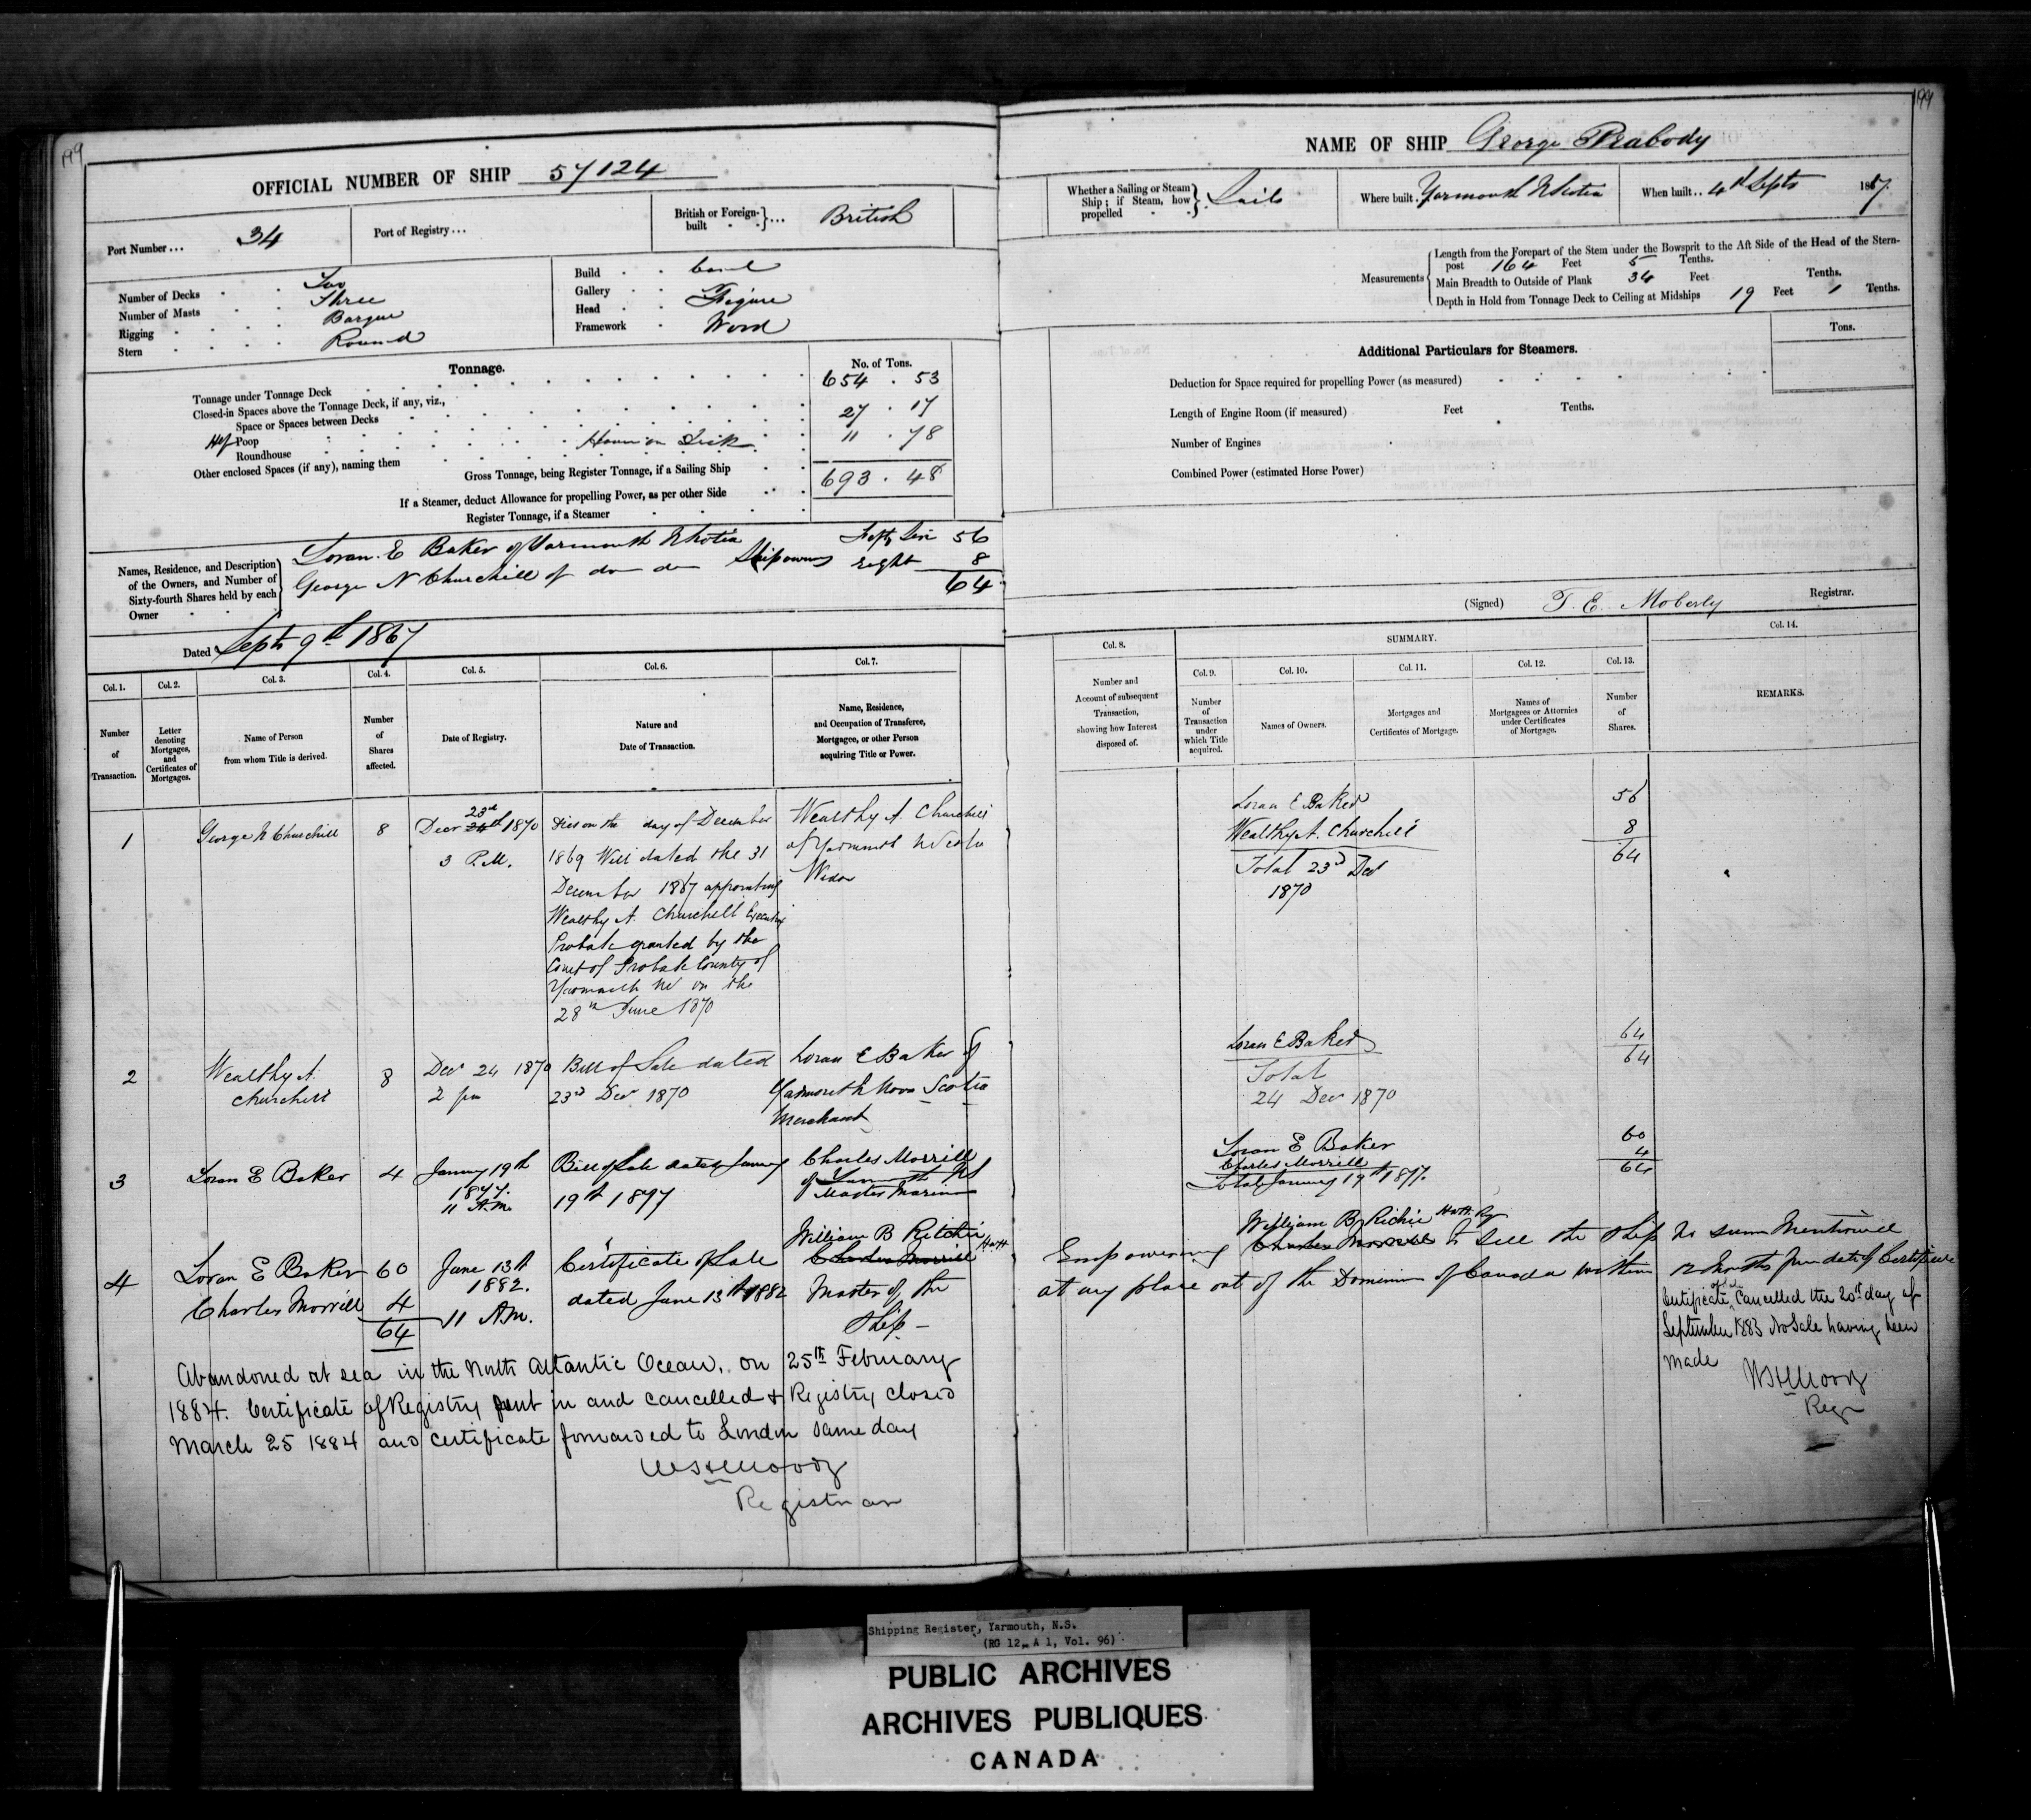 199
OFFICIAL NUMBER OF SHIP 57124
Port Number... 34
Port of Registry...
British or Foreign-built ... British
Number of Decks Two
Number of Masts Three
Rigging Barque
Stern Round
Build Carvel
Gallery
Head Figure
Framework Wood
Tonnage.
No. of Tons.
Tonnage under Tonnage Deck 654.53
Closed-in Spaces above the Tonnage Deck, if any, viz.,
Space or Spaces between Decks
Half Poop 27.17
Roundhouse
Other enclosed Spaces (if any), naming them 11.78
Gross Tonnage, being Register Tonnage, if a Sailing Ship 693.48
If a Steamer, deduct Allowance for propelling Power, as per other Side
Register Tonnage, if a Steamer
Names, Residence, and Description of the Owners, and Number of Sixty-fourth Shares held by each Owner
Loran E Baker of Yarmouth N Scotia Fifty Six 56
George N Churchill of do do Shipowners Eight 8
64
Dated Septr 9th 1867
Col. 1. Col. 2. Col. 3. Col. 4. Col. 5. Col. 6. Col. 7.
Number of Transaction.
Letter denoting Mortgages, and Certificates of Mortgages.
Name of Person from whom Title is derived.
Number of Shares affected.
Date of Registry.
Nature and Date of Transaction.
Name, Residence, and Occupation of Transferee, Mortgagee, or other Person acquiring Title or Power.
1 George N Churchill 8 Decr 23rd 24th 1870
3 P.M.
Dies on the day of December
1869 Will dated the 31
December 1867 appointing
Wealthy A. Churchill Executrix
Probate granted by the
Court of Probate County of
Yarmouth NS on the
28th June 1870
Wealthy A. Churchill
of Yarmouth N Scotia
Widow
2 Wealthy A. Churchill 8 Decr 24 1870
2 pm
Bill of Sale dated
23rd Decr 1870
Loran E Baker of
Yarmouth Nova Scotia
Merchant
3 Loran E Baker 4 January 19th
1877.
11 A.M.
Bill of Sale dated January
19th 1877
Charles Morrill
of Yarmouth NS
Master Mariner
4 Loran E Baker 60
Charles Morrill 4
64
June 13th
1882.
11 A.M.
Certificate of Sale
dated June 13th 1882
William B Ritchie
Charles Morrill
Master of the
Ship
Abandoned at sea in the North Atlantic Ocean, on 25th February
1884. Certificate of Registry sent in and cancelled & Registry closed
March 25 1884 and certificate forwarded to London same day
WSHMoody
Registrar
199
NAME OF SHIP George Peabody
Whether a Sailing or Steam Ship; if Steam, how propelled Sails
Where built Yarmouth N Scotia
When built.. 4th Septr 1867.
Measurements
Length from the Forepart of the Stem under the Bowsprit to the Aft Side of the Head of the Stern-
post 164 Feet 5 Tenths.
Main Breadth to Outside of Plank 34 Feet Tenths.
Depth in Hold from Tonnage Deck to Ceiling at Midships 19 Feet 1 Tenths.
Additional Particulars for Steamers.
Tons.
Deduction for Space required for propelling Power (as measured)
Length of Engine Room (if measured) Feet Tenths.
Number of Engines
Combined Power (estimated Horse Power)
(Signed) T. E. Moberly Registrar.
SUMMARY.
Col. 8. Col. 9. Col. 10. Col. 11. Col. 12. Col. 13. Col. 14.
Number and Account of subsequent Transaction, showing how Interest disposed of.
Number of Transaction under which Title acquired.
Names of Owners.
Mortgages and Certificates of Mortgage.
Names of Mortgagees or Attornies under Certificates of Mortgage.
Number of Shares.
REMARKS.
Loran E Baker 56
Wealthy A. Churchill 8
Total 23rd Decr 64
1870
Loran E Baker 64
Total 64
24 Decr 1870
Loran E Baker 60
Charles Morrill 4
Total January 19th 1877. 64
William B Richie
Empowering Charles Morrill to sell the Ship No sum Mentioned
at any place out of the Dominion of Canada within 12 Months from date of Certificate
Certificate of Sale Cancelled the 20th day of
September 1883 No Sale having been
made
WSHMoody
Regr
Shipping Register, Yarmouth, N.S.
(RG 12, A 1, Vol. 96)
PUBLIC ARCHIVES
ARCHIVES PUBLIQUES
CANADA